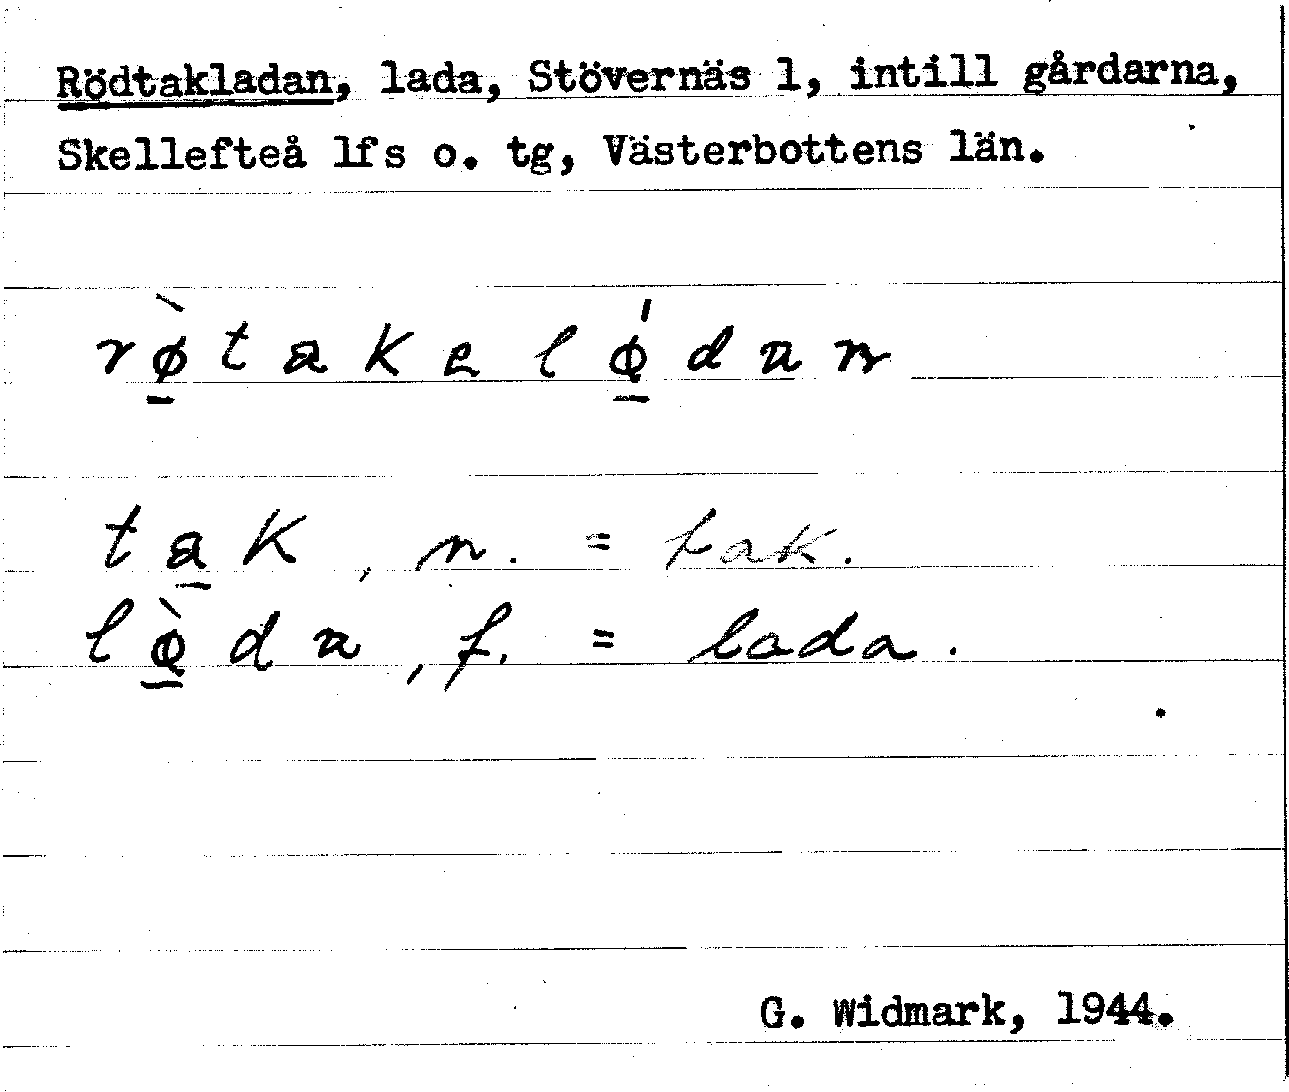 Rödtakladan, lada, Stövernäs 1, intill gårdarna,
Skellefteå lfs o. tg, Västerbottens län.
rø̠̀takelǿ̠dan
ta̠k, n. = tak.
lø̠̀da, f. = lada.
G. Widmark, 1944.